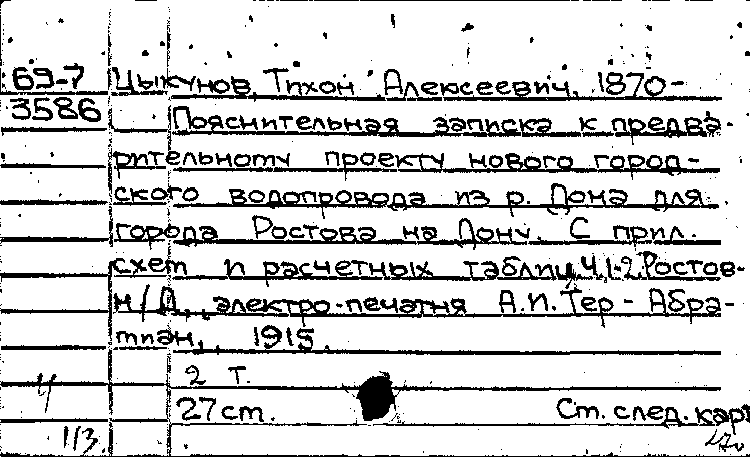 69-7 Цыкунов, Тихон Алексеевич, 1870-
3586 Пояснительная записка к предва-
рительному проекту нового город-
ского водопровода из р. Дона для
города Ростова на Дону. С прил.
схем и расчетных таблиц. Ч. 1-2. Ростов-
н/Д., электро-печатня А.И. Тер - Абра-
миан, 1915.
2 т.
27 cm. Ст. след. карт
113.